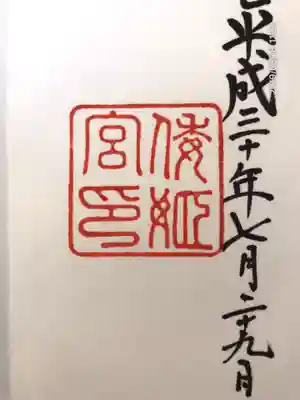 平成三十年七月二十九日
倭姫
宮印